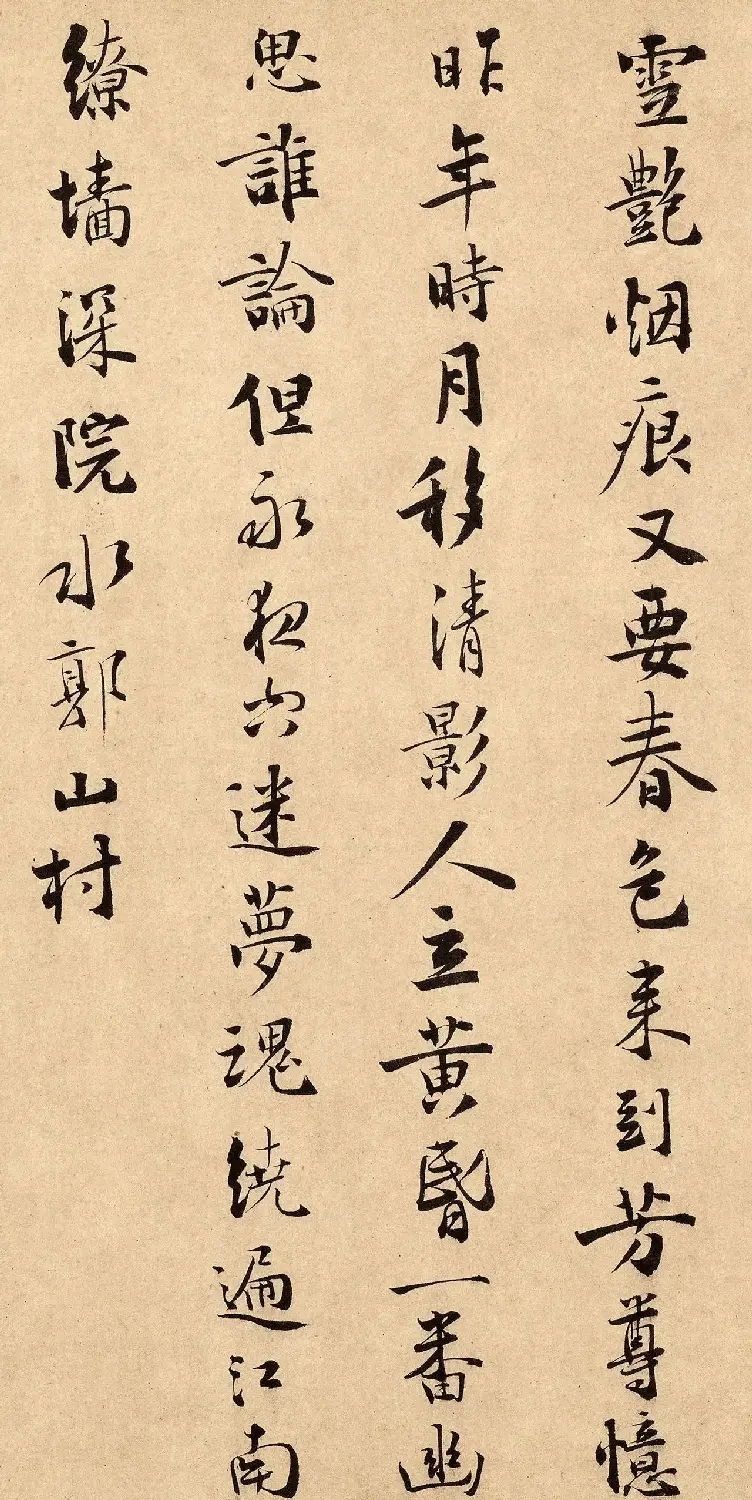 雪艶烟痕又要春色来到芳尊憶
昨年時月移清影人立黄昏一番幽
思誰論但永夜空迷夢魂繞遍江南
繚墻深院水郭山村